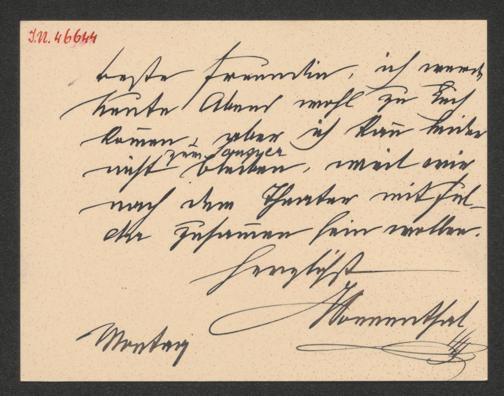 J.N. 46644
beste Freundin, ich werde
heute Abend wohl zu Euch
kom̄en, aber ich kan̄ leider
zum Souper
nicht bleiben, weil wir
nach dem Theater mit
zusam̄en sein wollen.
Herzlichst
Sonnenthal
Montag